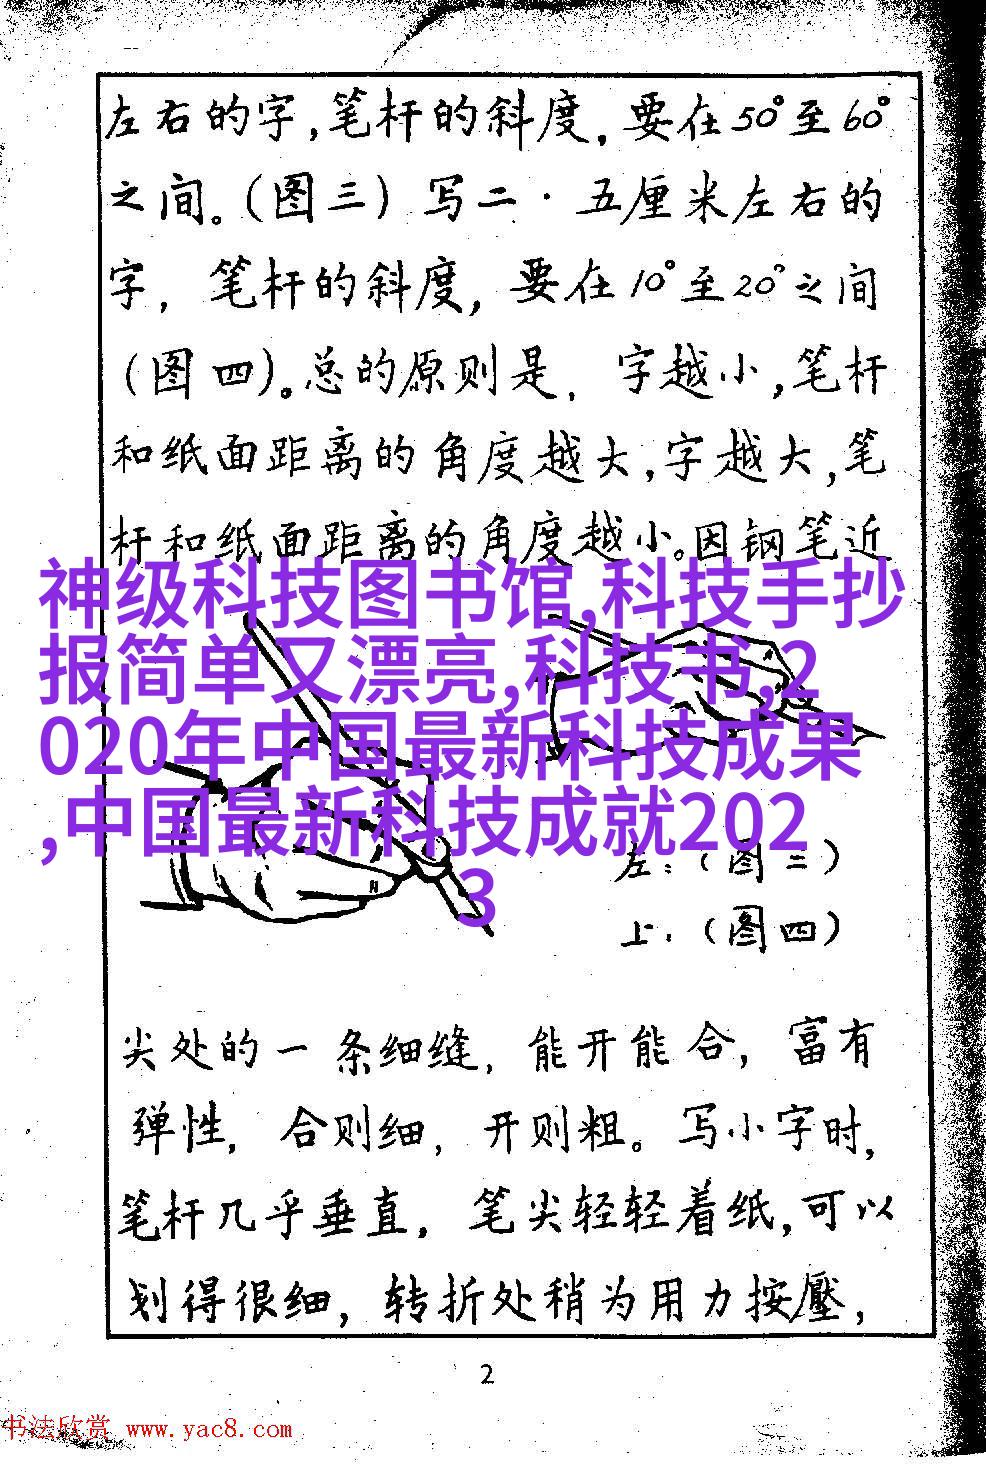 左右的字,笔杆的斜度,要在50°至60°
之间。(图三)写二·五厘米左右的
字,笔杆的斜度,要在10°至20°之间
(图四)。总的原则是,字越小,笔杆
和纸面距离的角度越大,字越大,笔
杆和纸面距离的角度越小。因钢笔近
神级科技图书馆,科技手抄
报简单又漂亮,科技书,2
020年中国最新科技成果
,中国最新科技成就202
3
左:(图三)
上:(图四)
尖处的一条细缝,能开能合,富有
弹性,合则细,开则粗。写小字时,
笔杆几乎垂直,笔尖轻轻着纸,可以
划得很细,转折处稍为用力按壓,
2
书法欣赏 www.yac8.com